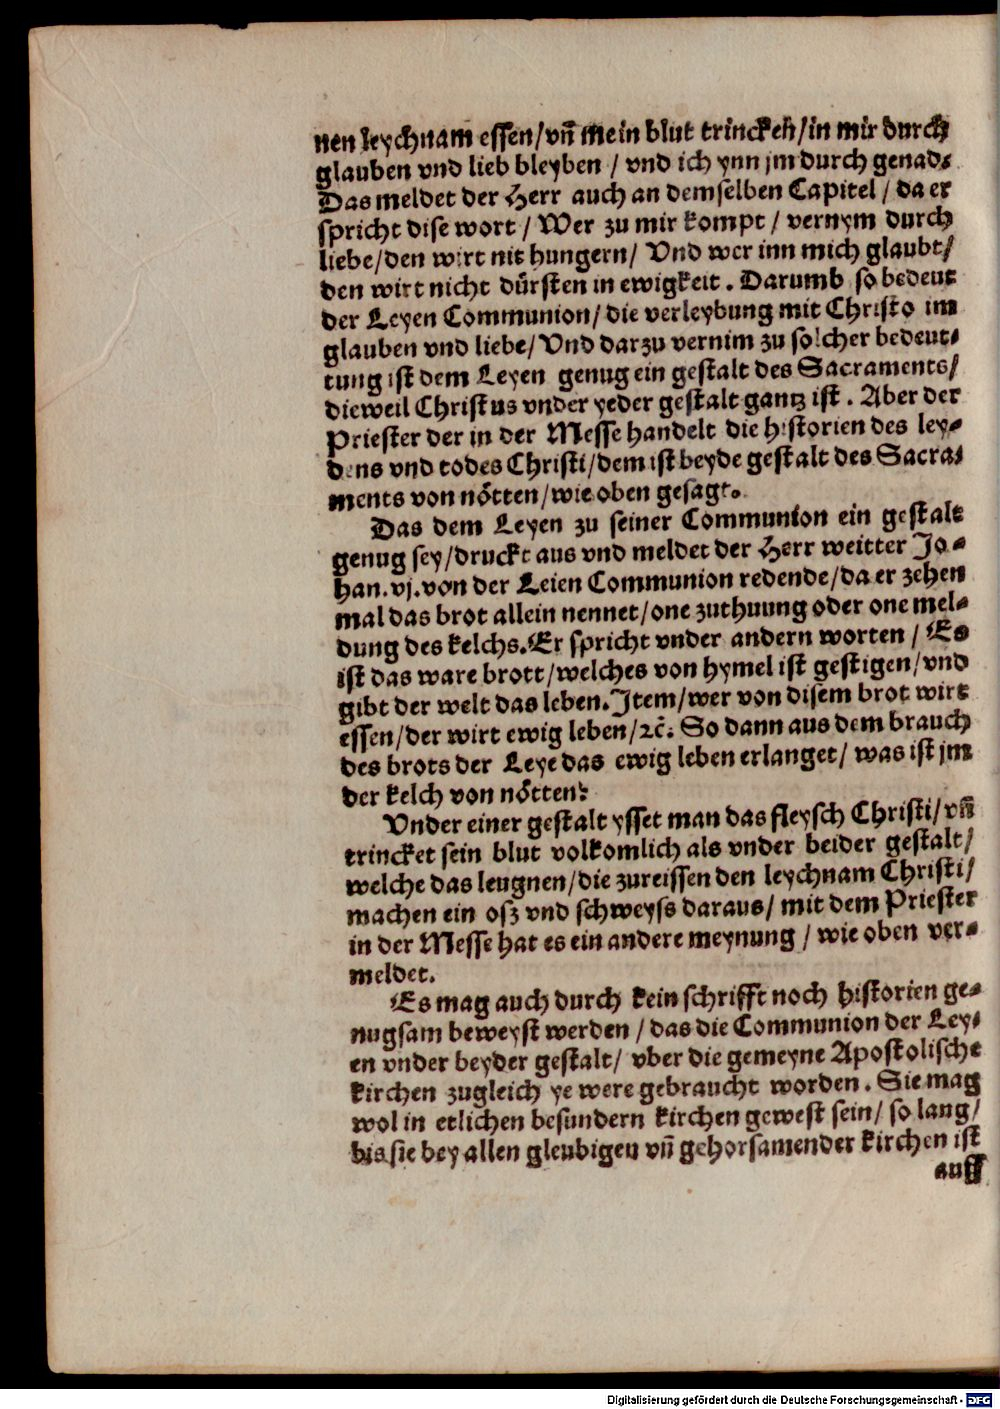 nen leychnam essen/vn̄ mein blut trincken̄/in mir durch
glauben vnd lieb bleyben / vnd ich ynn jm durch genad⸗
Das meldet der Herr auch an demselben Capitel / da er
spricht dise wort / Wer zu mir kompt / vernym durch
liebe/den wirt nit hungern/ Vnd wer inn mich glaubt/
den wirt nicht dürsten in ewigkeit . Darumb so bedeut
der Leyen Communion/ die verleybung mit Christo im
glauben vnd liebe/ Vnd darzu vernim zu solcher bedeut⸗
tung ist dem Leyen genug ein gestalt des Sacraments/
dieweil Christus vnder yeder gestalt gantz ist . Aber der
Priester der in der Messe handelt die historien des ley⸗
dens vnd todes Christi/dem ist beyde gestalt des Sacra⸗
ments von nötten/wie oben gesagt.
Das dem Leyen zu seiner Communion ein gestalt
genug sey/druckt aus vnd meldet der Herr weitter Jo⸗
han. vj. von der Leien Communion redende/da er zehen
mal das brot allein nennet/one zuthuung oder one mel⸗
dung des kelchs. Er spricht vnder andern worten / Es
ist das ware brott/welches von hymel ist gestigen/vnd
gibt der welt das leben. Item/wer von disem brot wirt
essen/der wirt ewig leben/ꝛc̄. So dann aus dem brauch
des brots der Leye das ewig leben erlanget/ was ist jm
der kelch von nötten?
Vnder einer gestalt ysset man das fleysch Christi/vn̄
trincket sein blut volkomlich als vnder beider gestalt/
welche das leugnen/die zureissen den leychnam Christi/
machen ein osz vnd schweyss daraus/ mit dem Priester
in der Messe hat es ein andere meynung / wie oben ver⸗
meldet.
Es mag auch durch kein schrifft noch historien ge⸗
nugsam beweyst werden / das die Communion der Ley⸗
en vnder beyder gestalt/ vber die gemeyne Apostolische
kirchen zugleich ye were gebraucht worden . Sie mag
wol in etlichen besundern kirchen gewest sein/ so lang/
bis sie bey allen gleubigen vn̄ gehorsamen der kirchen ist
auff
Digitalisierung gefördert durch die Deutsche Forschungsgemeinschaft - DFG